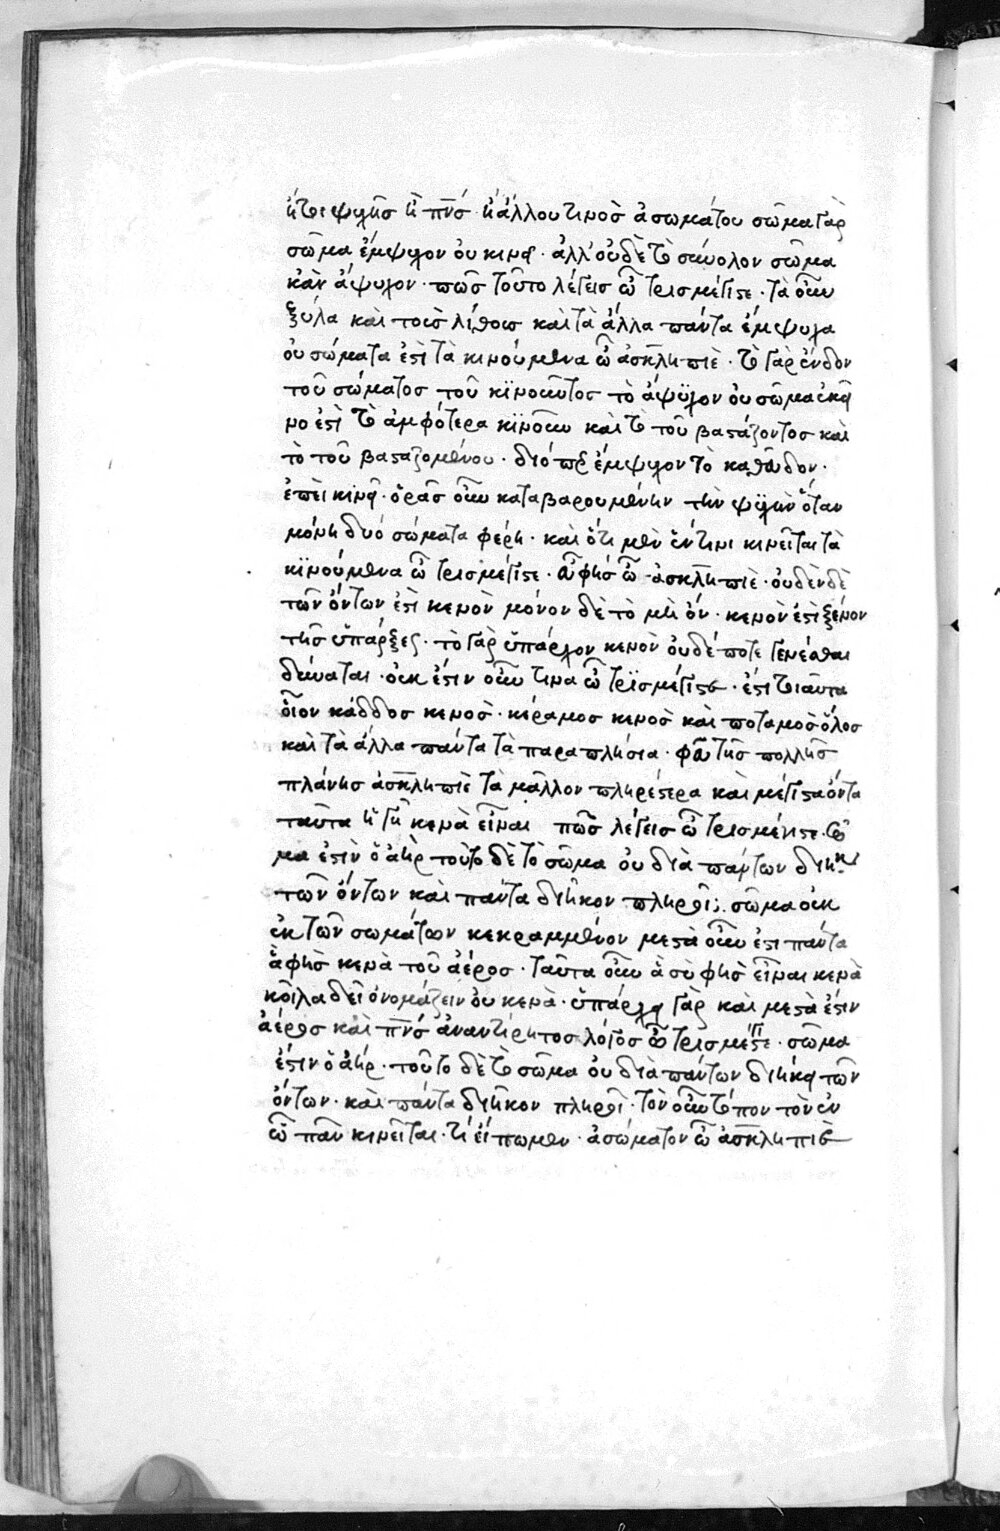 ἤτοι ψυχῆς ἢ πν̅ς ἢ ἄλλου τινὸς ἀσωμάτου σῶμα γὰρ
σῶμα ἔμψυχον οὐ κινεῖ · ἀλλ' οὐδὲ τὸ σύνολον σῶμα
κἂν ἄψυχον · πῶς τοῦτο λέγεις ὦ τρισμέγιστε · τὰ οὖν
ξύλα καὶ τοὺς λίθους καὶ τὰ ἄλλα πάντα ἔμψυχα
οὐ σώματα ἐστὶ τὰ κινούμενα ὦ ἀσκληπιὲ · τὸ γὰρ ἔνδον
τοῦ σώματος τοῦ κϊνοῦντος τὸ ἄψϋχον οὐ σῶμα ἐκεῖ
νο ἐστὶ τὸ ἀμφότερα κϊνοῦν καὶ τὸ τοῦ βαστάζοντος καὶ
τὸ τοῦ βασταζομένου · διόπερ ἔμψυχον τὸ καθεῦδον ·
ἐπεὶ κϊνεῖ · ὁρᾶς οὖν καταβαρουμένην τὴν ψϋχὴν ὅταν
μόνη δυό σώματα φέρη · καὶ ὅτι μὲν ἔν τινι κινεῖται τὰ
κϊνούμενα ὦ τρισμέγιστε · φῆς ὦ ἀσκληπιὲ · οὐδὲν δὲ
τῶν ὄντων ἐστὶ κενὸν μόνον δὲ τὸ μὴ ὄν · κενὸν ἐστὶ ξένον
τῆς ὑπάρξες · τὸ γὰρ ὑπάρχον κενὸν οὐδέποτε γενέσθαι
δύναται · οὐκ ἔστιν οὖν τινα ὦ τρϊσμέγιστε · ἐστὶ τοιαῦτα
οἷον κάδδος κενὸς · κέραμος κενὸς καὶ ποταμὸς ὅλος
καὶ τὰ ἄλλα πάντα τὰ παραπλήσια · φεῦ τῆς πολλῆς
πλάνης ἀσκληπιὲ τὰ μᾶλλον πληρέστερα καὶ μέγιστα ὄντα
ταῦτα ἡγῆ κενὰ εἶναι πῶς λέγεις ὦ τρισμέγιστε · σῶ
μα ἐστὶν ὁ ἀὴρ τοῦτο δὲ τὸ σῶμα οὐ διὰ πάντων διήκει
τῶν ὄντων καὶ πάντα διῆκον πληροῖ; σῶμα οὐκ
ἐκ τῶν σωμάτων κεκραμμένον μεστὰ οὖν ἐστι πάντα
ἃ φὴς κενὰ τοῦ ἀέρος · ταῦτα οὖν ἃ σὺ φῂς εἶναι κενὰ
κοῖλα δεῖ ὀνομάζειν οὐ κενὰ · ὑπάρχει γὰρ καὶ μεστὰ ἐστιν
ἀέρος καὶ πν̅ς ἀναντίρρητος λόγος ὦ τρισμέγιστε · σῶμα
ἐστιν ὁ ἀὴρ · τοῦτο δὲ τὸ σῶμα οὐ διὰ πάντων διήκει τῶν
ὄντων · καὶ πάντα διῆκον πληροῖ · τὸν οὖν τόπον τὸν ἐν
ὧ πᾶν κινεῖται · τί εἴπωμεν · ἀσώματον ὦ ἀσκληπιὲ